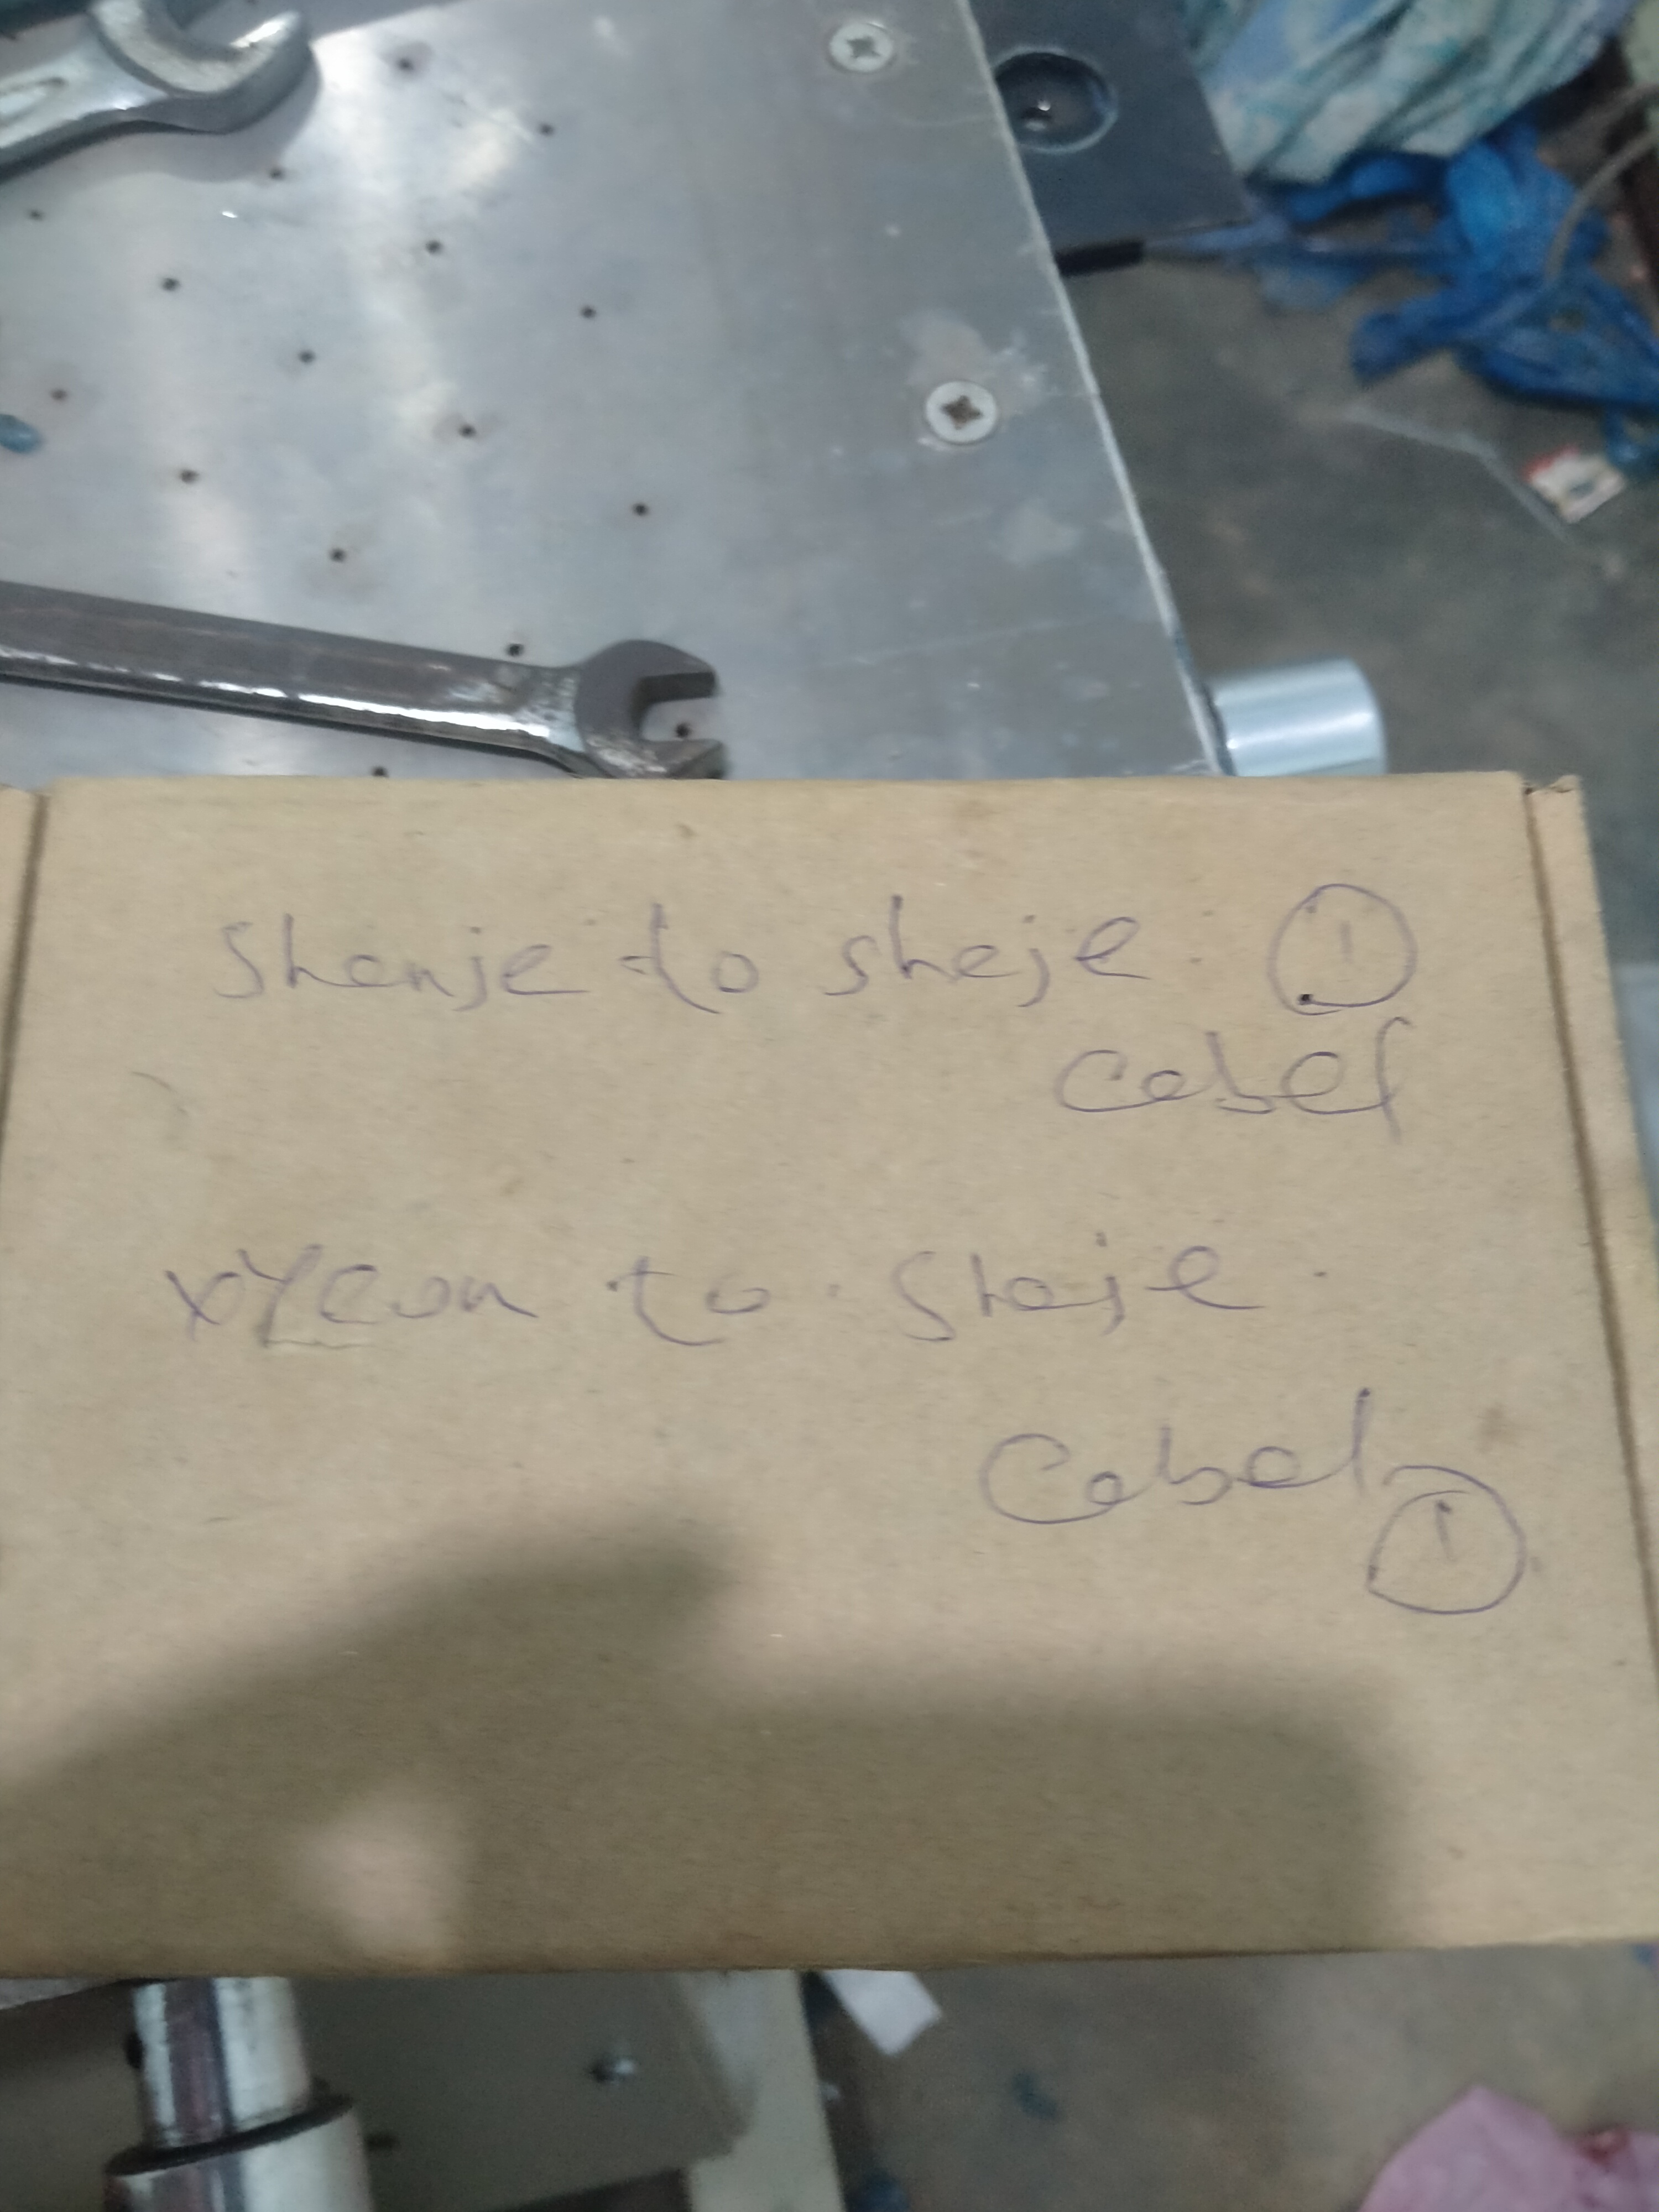 Shenje to sheje ①
cabel
XYCon to Sheje
Cabel ①